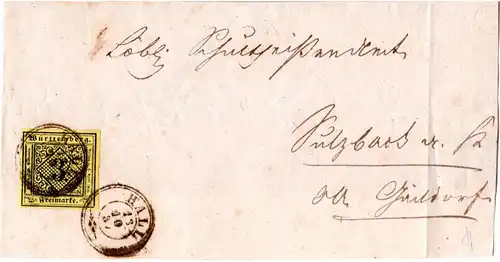 Löbl. Schultheißenamt
Sulzbach a. K
OA Gaildorf
Württemberg.
Freimarke.
HALL